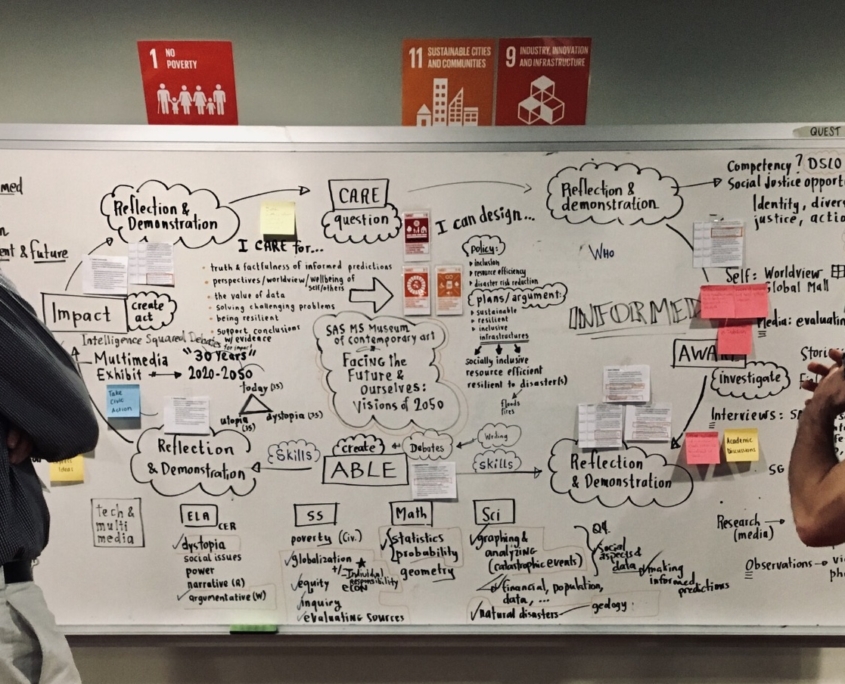 1 NO
POVERTY
11 SUSTAINABLE CITIES
AND COMMUNITIES
9 INDUSTRY, INNOVATION
AND INFRASTRUCTURE
QUEST
Reflection &
Demonstration
CARE
question
I CARE for...
truth & factfulness of informed predictions
perspectives/worldview/wellbeing of
self/others
the value of data
solving challenging problems
being resilient
support conclusions
w/ evidence
I can design...
policy:
inclusion
resource efficiency
disaster risk reduction
plans/argument:
sustainable
resilient
inclusive
infrastructures
socially inclusive
resource efficient
resilient to disaster(s)
floods
fires
Reflection &
demonstration
WHO
INFORMED
Competency? DSLO
Social Justice opport
Identity, diver
justice, actio
Self: Worldview
Global Mall
Media: evaluatin
AWA
investigate
Interviews:
ent & future
Impact
create
act
Intelligence Squared Debates
for impact
Multimedia
Exhibit
"30 Years"
2020-2050
today (SS)
utopia
(SS)
dystopia (SS)
Take
Civic
Action
Ideas
SAS MS Museum
of contemporary art
Facing the
Future &
Ourselves:
Visions of 2050
Reflection
& Demonstration
Skills
create
Debates
Writing
ABLE
skills
Reflection
& Demonstration
Academic
Discussions
SG
Research
(media)
Observations
tech &
multi
media
ELA
CER
dystopia
social issues
power
narrative (R)
argumentative (W)
SS
poverty (Civ.)
globalization
+/- Individual
responsibility
equity
ECON
inquiry
evaluating sources
Math
statistics
probability
geometry
Sci
graphing &
analyzing
(catastrophic events)
financial, population,
data, ...
natural disasters
geology
Q4
social
aspects &
data
making
informed
predictions